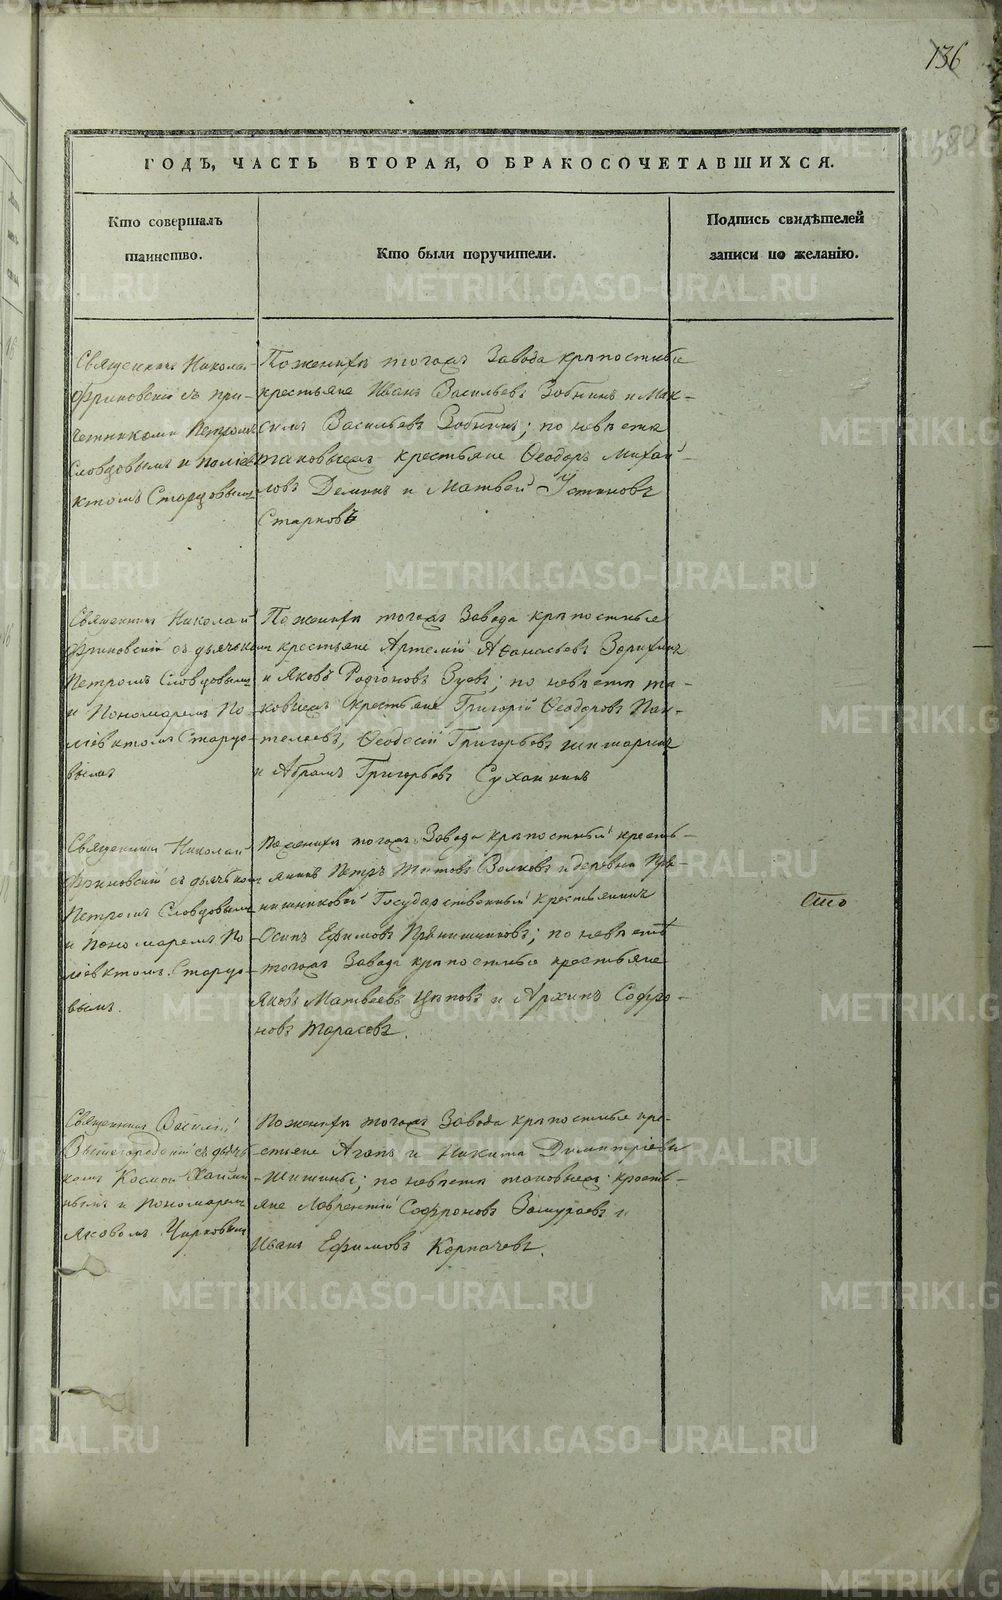 136
380
ГОДЪ, ЧАСТЬ ВТОРАЯ, О БРАКОСОЧЕТАВШИХСЯ.
Кто совершалъ
таинство.
Кто были поручители.
Подпись свидѣтелей
записи по желанію.
Священникъ Николай
Фриновскій съ при-
четниками Петромъ
Словцовымъ и Поліев
ктомъ Старцовымъ
По женихѣ тогожъ Завода крѣпостные
крестьяне Иванъ Васильевъ Зобнинъ и Мак-
симъ Васильевъ Зобнинъ; по невѣстѣ
таковыежъ крестьяне Ѳеодоръ Михай-
ловъ Деминъ и Матвей Устиновъ
Старковъ
Священникъ Николай
Фриновскій съ дьячкомъ
Петромъ Словцовымъ
и Пономаремъ По
ліевктомъ Старцо-
вымъ
По женихѣ тогожъ Завода крѣпостные
крестьяне Артемій Аѳанасьевъ
и Яковъ Родіоновъ Зуевъ; по невѣстѣ та-
ковыежъ крестьяне Григорій Ѳеодоровъ Пан-
телеевъ, Ѳеодосій Григорьевъ
и Абрамъ Григорьевъ Суханкинъ
Священникъ Николай
Фриновскій съ дьячкомъ
Петромъ Словцовымъ
и Пономаремъ По
ліевктомъ Старцо-
вымъ.
По женихѣ тогожъ Завода крѣпостный кресть-
янинъ Петръ Титовъ Волковъ и деревни
Государственный крестьянинъ
Осипъ Ефимовъ; по невѣстѣ
тогожъ Завода крѣпостные крестьяне
Яковъ Матвеевъ и Архипъ Софро-
новъ Тарасовъ.
Сто
Священникъ Василій
съ дьяч-
комъ Космою
и Пономаремъ
Яковомъ Чирковымъ
По женихѣ тогожъ Завода крѣпостные кре-
стьяне Агапъ и Никита Димитріевы
Шишины; по невѣстѣ таковыежъ кресть-
яне Лаврентій Софроновъ и
Иванъ Ефимовъ Корпачевъ.
METRIKI.GASO-URAL.RU